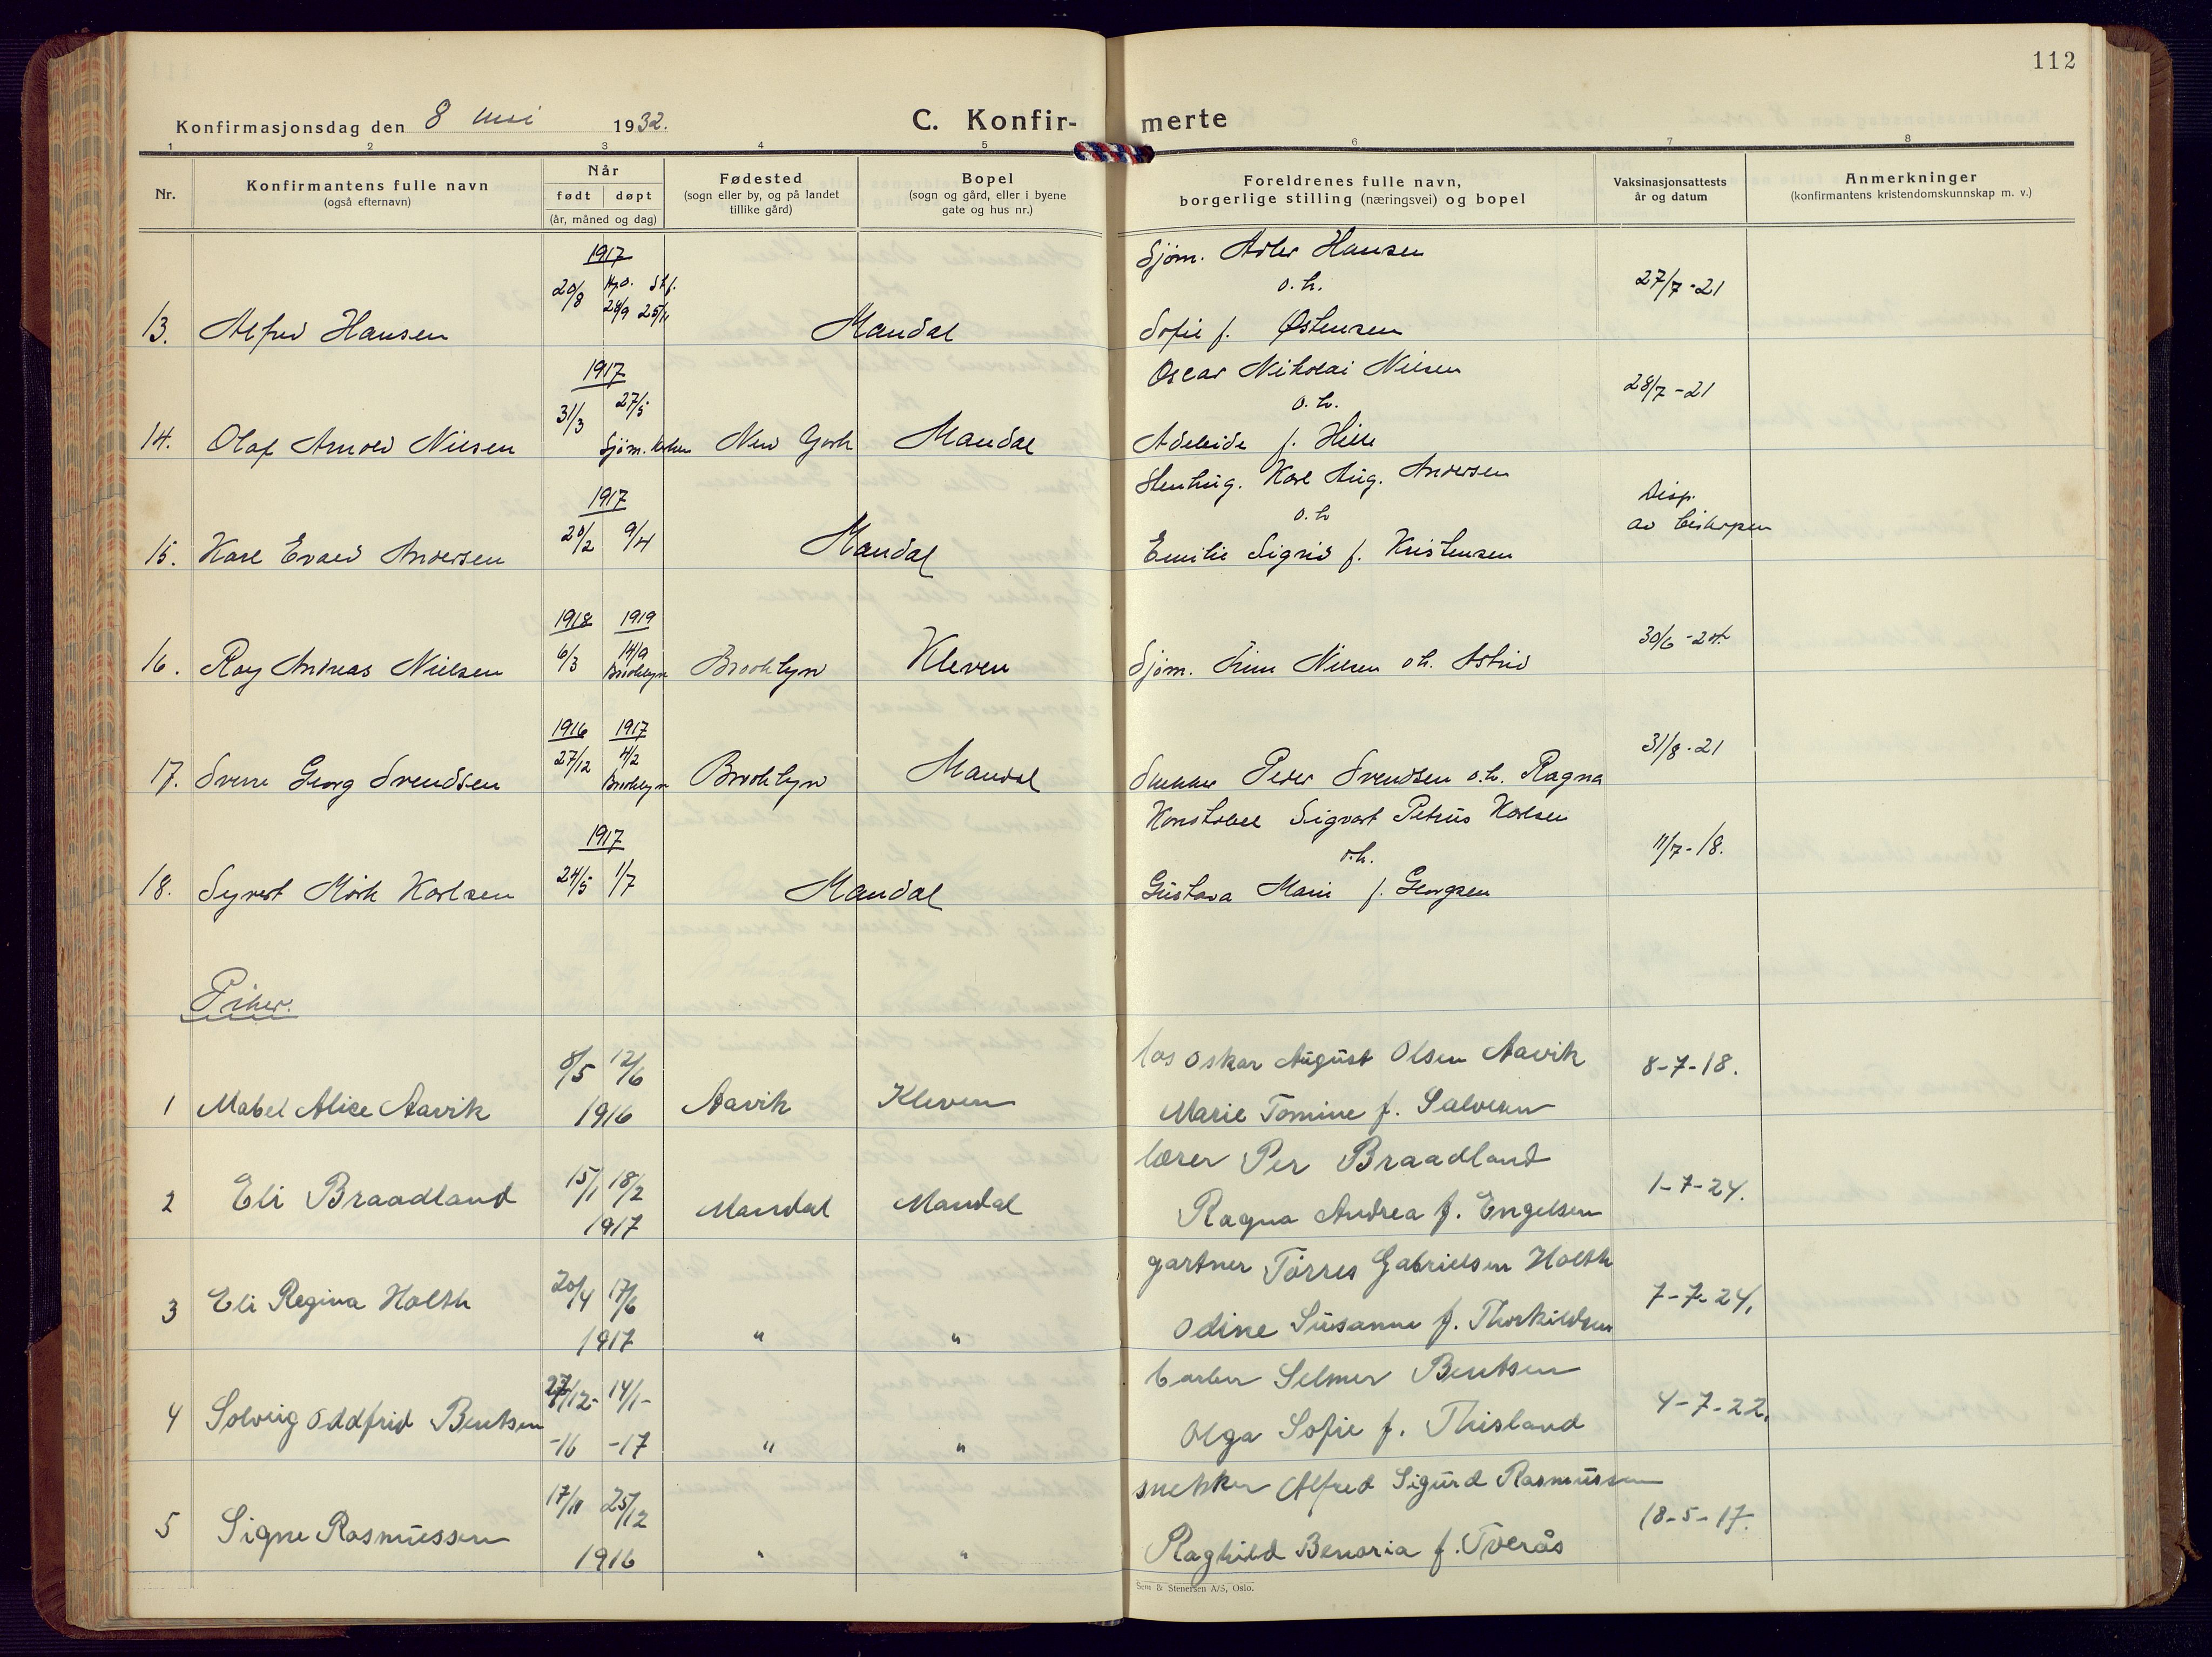 112
Konfirmasjonsdag den 8 mai 1932.
C. Konfir- merte
1 2 3 4 5 6 7 8
Nr.
Konfirmantens fulle navn
(også efternavn)
Når
født døpt
(år, måned og dag)
Fødested
(sogn eller by, og på landet
tillike gård)
Bopel
(sogn og gård, eller i byene
gate og hus nr.)
Foreldrenes fulle navn,
borgerlige stilling (næringsvei) og bopel
Vaksinasjonsattests
år og datum
Anmerkninger
(konfirmantens kristendomskunnskap m. v.)
1917
20/8 Hjd. Stf.
24/9 25/11
13. Alfred Hansen Mandal
Sjøm. Adler Hansen
o. h.
Sofie f. Østensen
27/7 - 21
1917
31/3 27/5
14. Olaf Arnold Nilsen Sjøm. kirken New York Mandal
Oscar Nikolai Nilsen
o. h.
Adeleide f. Hille
28/7 - 21
1917
20/2 9/4
15. Karl Evald Andersen Mandal
Stenhug. Karl Aug. Andersen
o. h
Emilie Sigrid f. Kristensen
Disp.
av biskopen
1918 1919
6/3 14/9
Brooklyn
16. Roy Andreas Nielsen Brooklyn Kleven
Sjøm. Finn Nilsen o h. Astrid
30/6 - 24.
1916 1917
27/12 4/2
Brooklyn
17. Sverre Georg Svendsen Brooklyn Mandal
Snekker Peder Svendsen o. h. Ragna
31/8 - 21
1917
24/5 1/7
18. Syvert Mörk Karlsen Mandal
Konstabel Sigvart Petrus Karlsen
o. h.
Gustava Marie f. Georgsen
11/7 - 18.
Piker.
8/5 12/6
1 Mabel Alice Aavik 1916 Aavik Kleven
los Oskar August Olsen Aavik
Marie Tomine f. Salvesen
8-7-18.
15/1 18/2
2 Eli Braadland 1917 Mandal Mandal
lærer Per Braadland
Ragna Andrea f. Engelsen
1-7-24.
20/4 17/6
3 Eli Regina Holth 1917 " "
gartner Tørres Gabrielsen Holth
Odine Susanne f. Thorkildsen
7-7-24.
27/12- 14/1-
4 Solveig Oddfrid Bentsen -16 -17 " "
barber Selmer Bentsen
Olga Sofie f. Thisland
4-7-22.
17/11 25/12
5 Signe Rasmussen 1916 " "
snekker Alfred Sigurd Rasmussen
Raghild Benoria f. Tverås
18-5-17.
Sem & Stenersen A/S, Oslo.